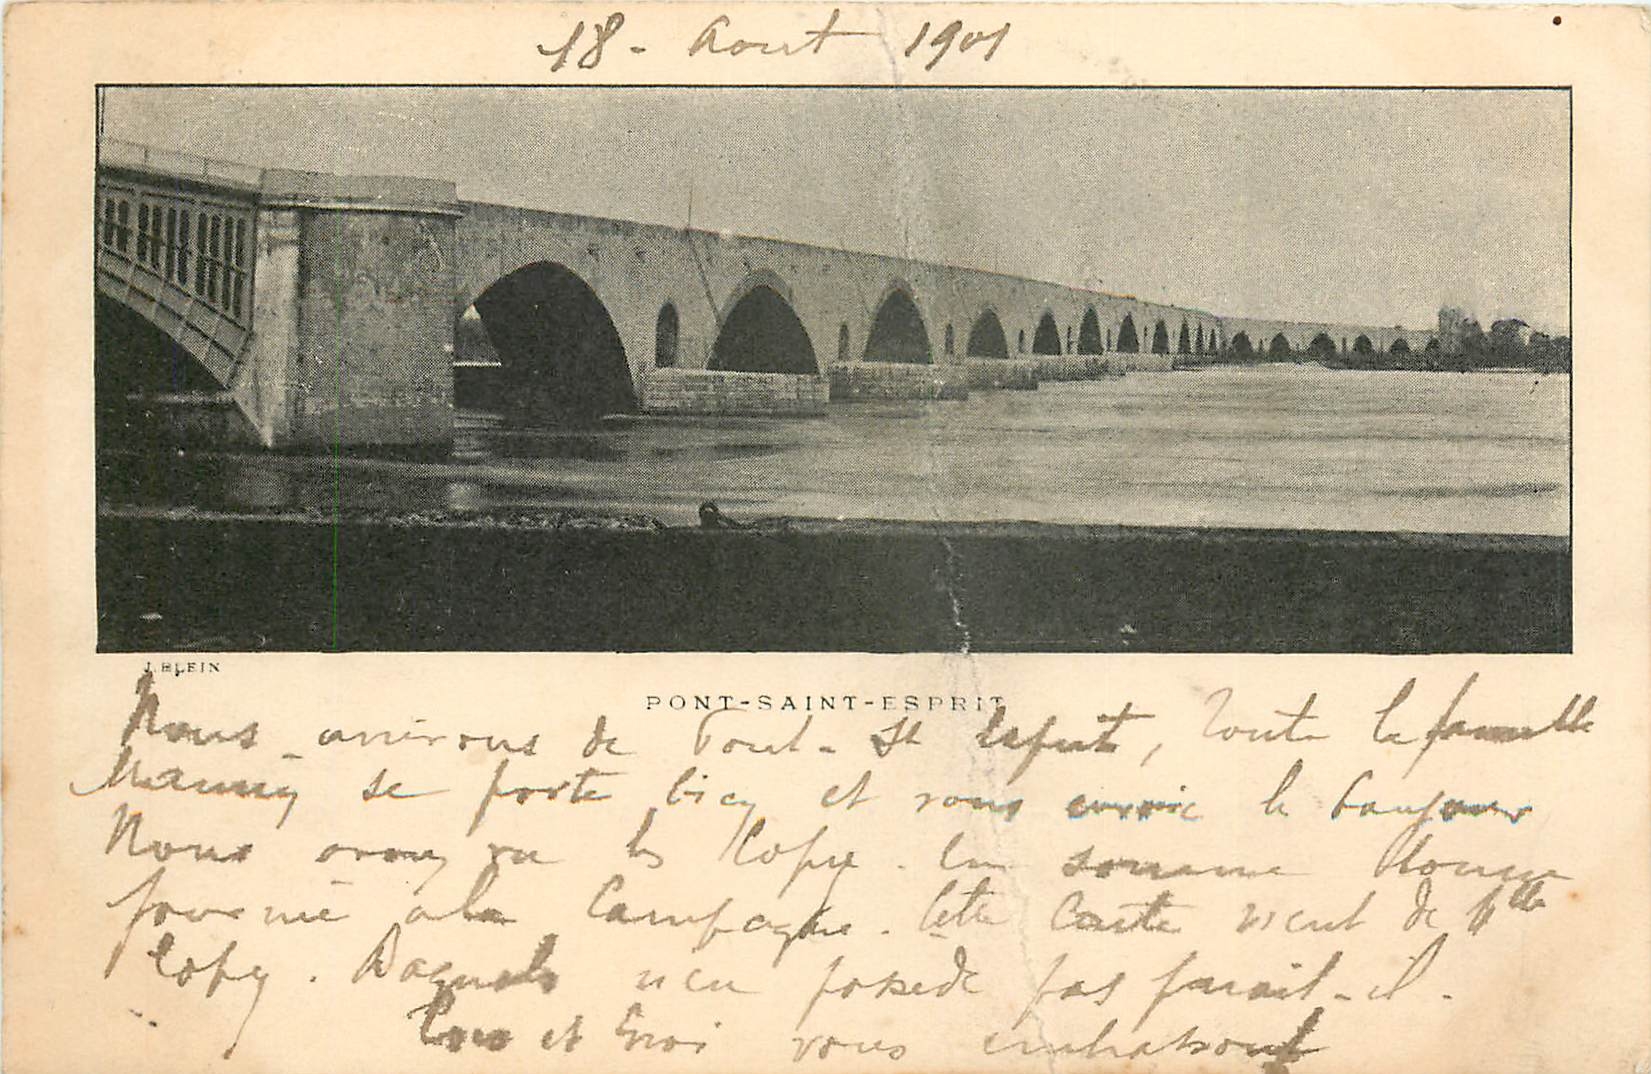 18 - Aout 1901
J. BLEIN
PONT-SAINT-ESPRIT
Nous arrivons de Pont-St Esprit, Toute la famille
se porte bien et vous envoie le bonjour
Nous avons vu les Copy. En somme bonne
journée a la Campagne. Cette Carte vient de Mlle
Copy. Bagnols n'en possède pas parait-il.
et moi vous embrassons